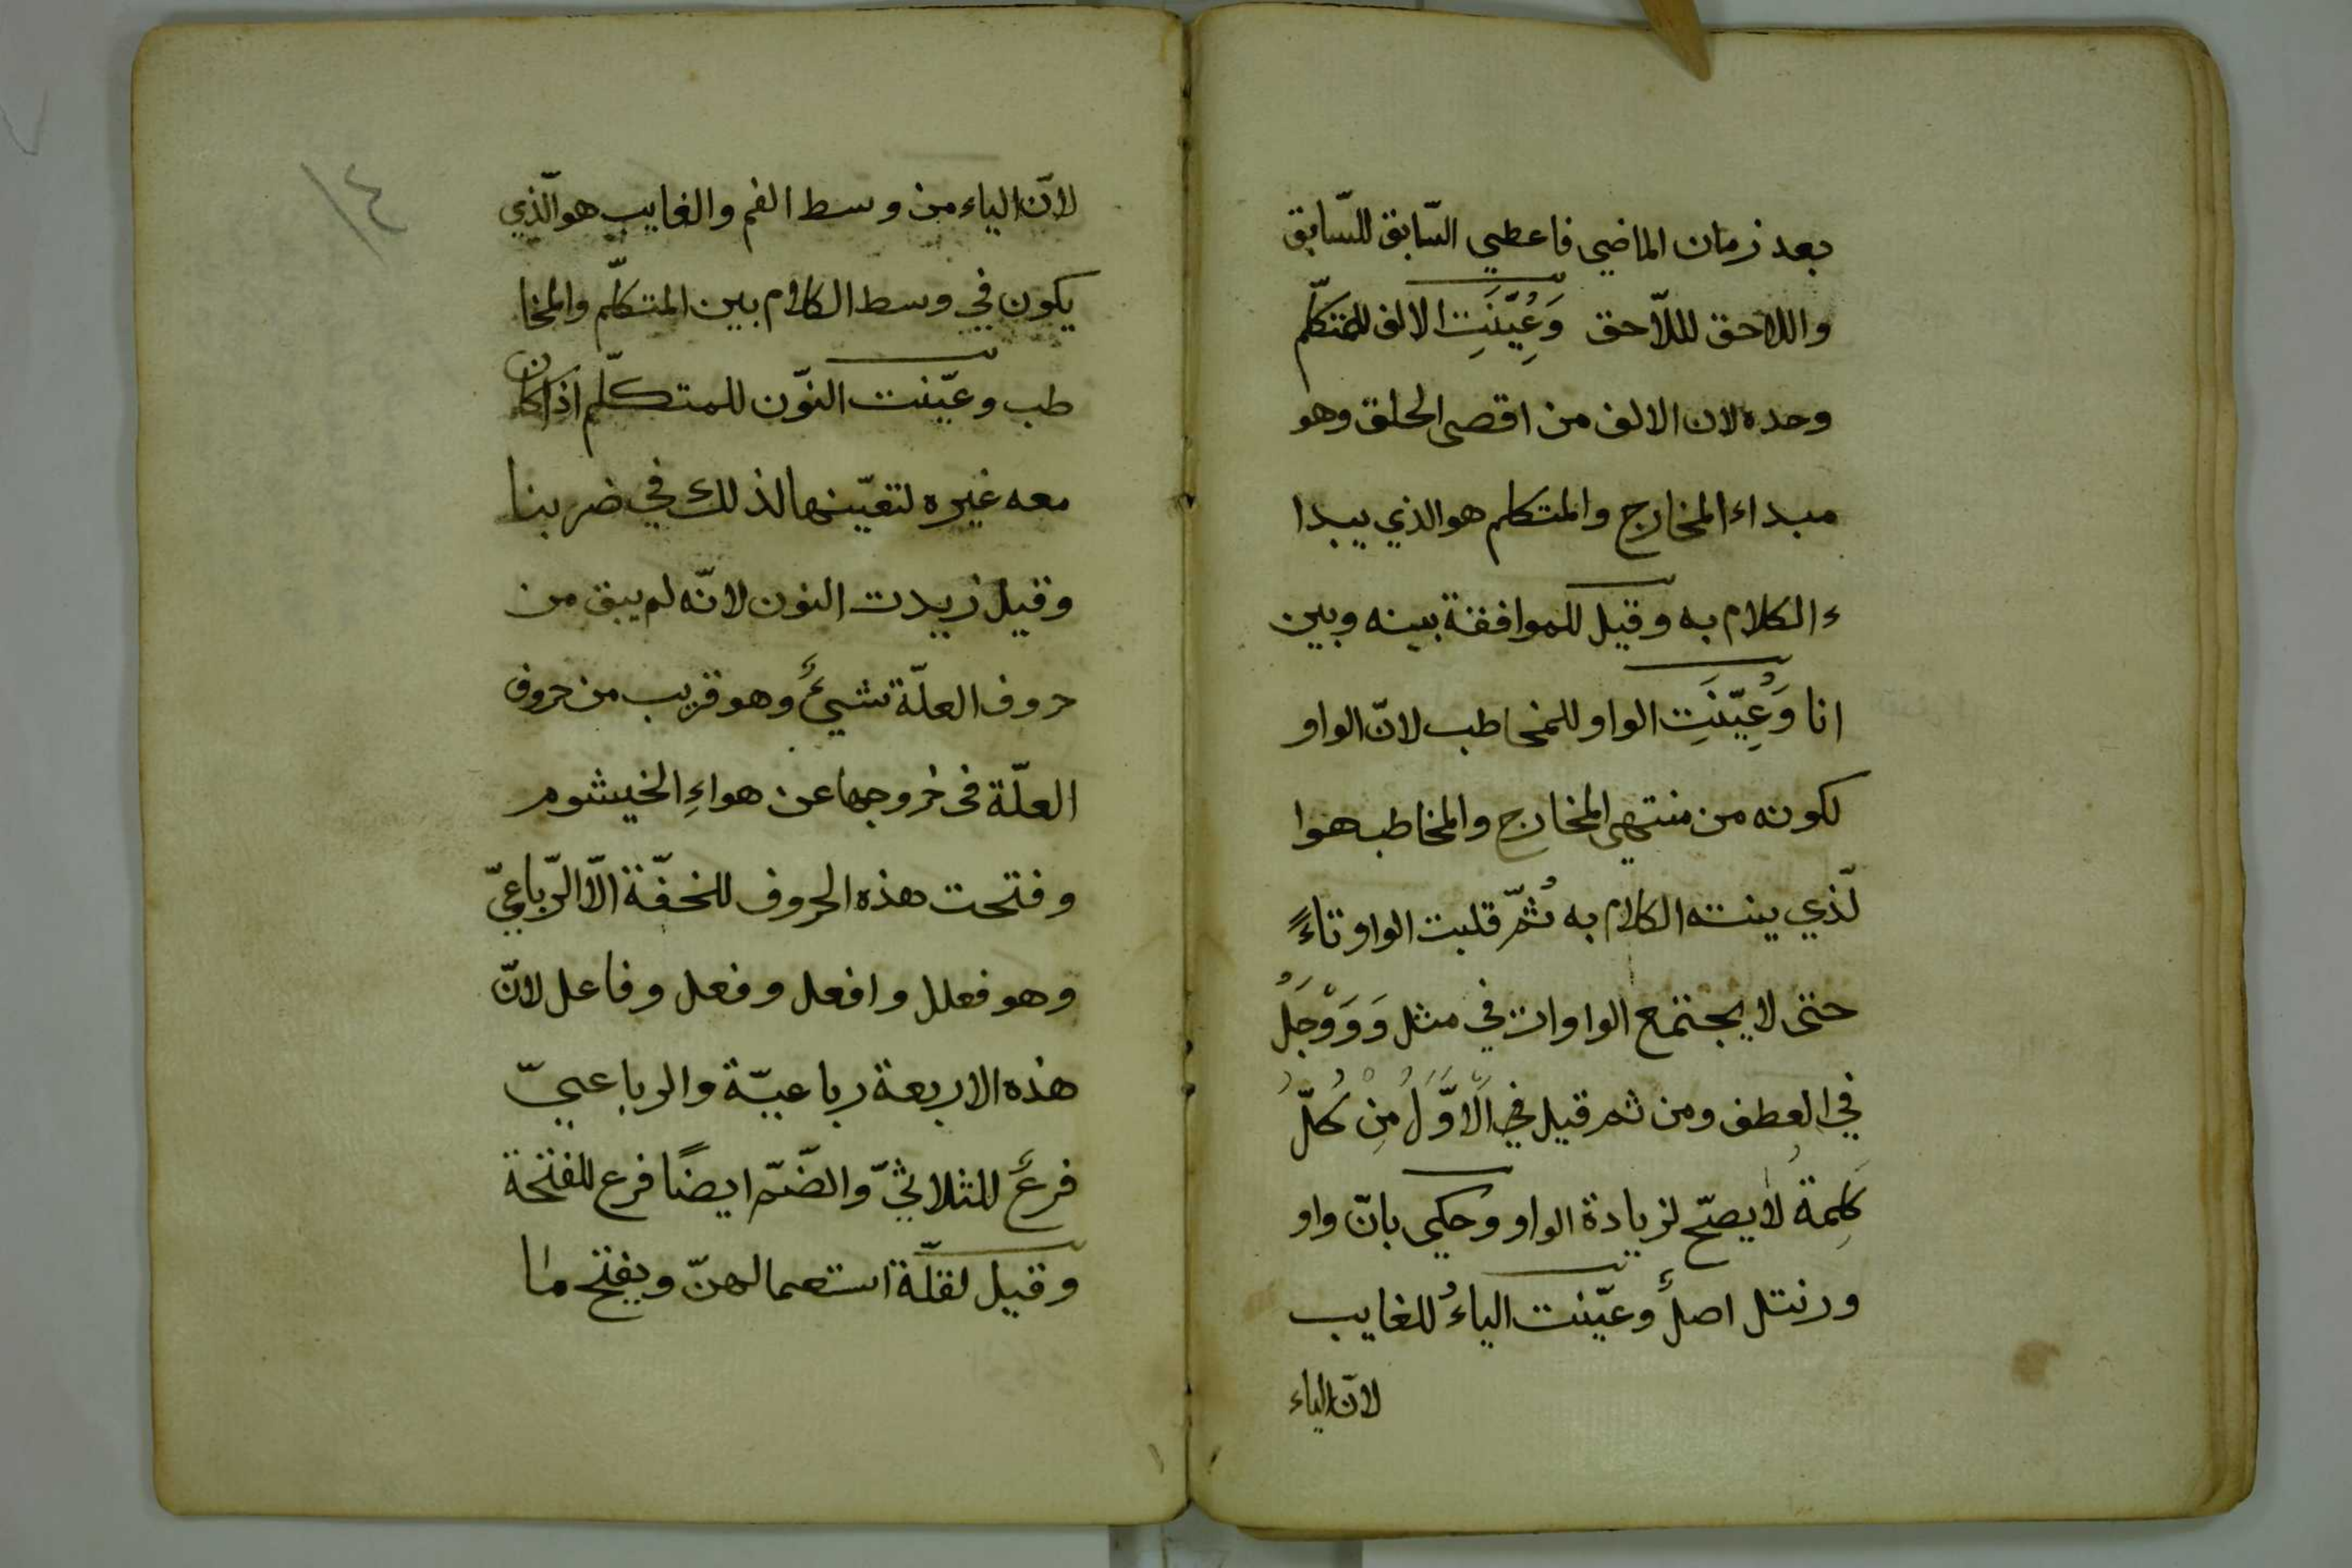 بعد زمان الماضي فاعطي السّابق للسّابق
واللاحق لللّاحق وَعُيِّنَتِ الالف للمتكلّم
وحده لان الالف من اقصى الحلق وهو
مبداء المخارج والمتكلم هو الذي يبدا
ء الكلام به وقيل للموافقة بينه وبين
انا وَعُيِّنَتِ الواو للمخاطب لانّ الواو
لكونه من منتهى المخارج والمخاطب هوا
لّذي ينته الكلام به ثُمّ قلبت الواو تاءً
حتى لا يجتمع الواوات في مثل وَوَوْجَلُ
في العطف ومن ثم قيل في الَاوَّلُ مِنْ كُلّ
كَلِمة لا يصحّ لزيادة الواو وحكي بانّ واو
ورنتل اصلٌ وعيّنت الياءُ للغايب
لانّ الياء
٤
لانّ الياء من وسط الفم والغايب هو الّذي
يكون في وسط الكلام بين المتكلّم والمخا
طب وعيّنت النّون للمتكلّم اذا كان
معه غيره لتعيّنها لذلك في ضربنا
وقيل زيدت النون لانّه لم يبق من
حروف العلّة شيئٌ وهو قريب من حروف
العلّة فى خروجها عن هواءِ الخيشوم
وفتحت هذه الحروف للخفّة الّا الرّباعيّ
وهو فعلل وافعل وفعل وفاعل لانّ
هذه الاربعة رباعيّة والرباعيّ
فرعٌ للثلاثيّ والضّمّ ايضًا فرع للفتحة
وقيل لقلّة استعمالهنّ ويفتح ما